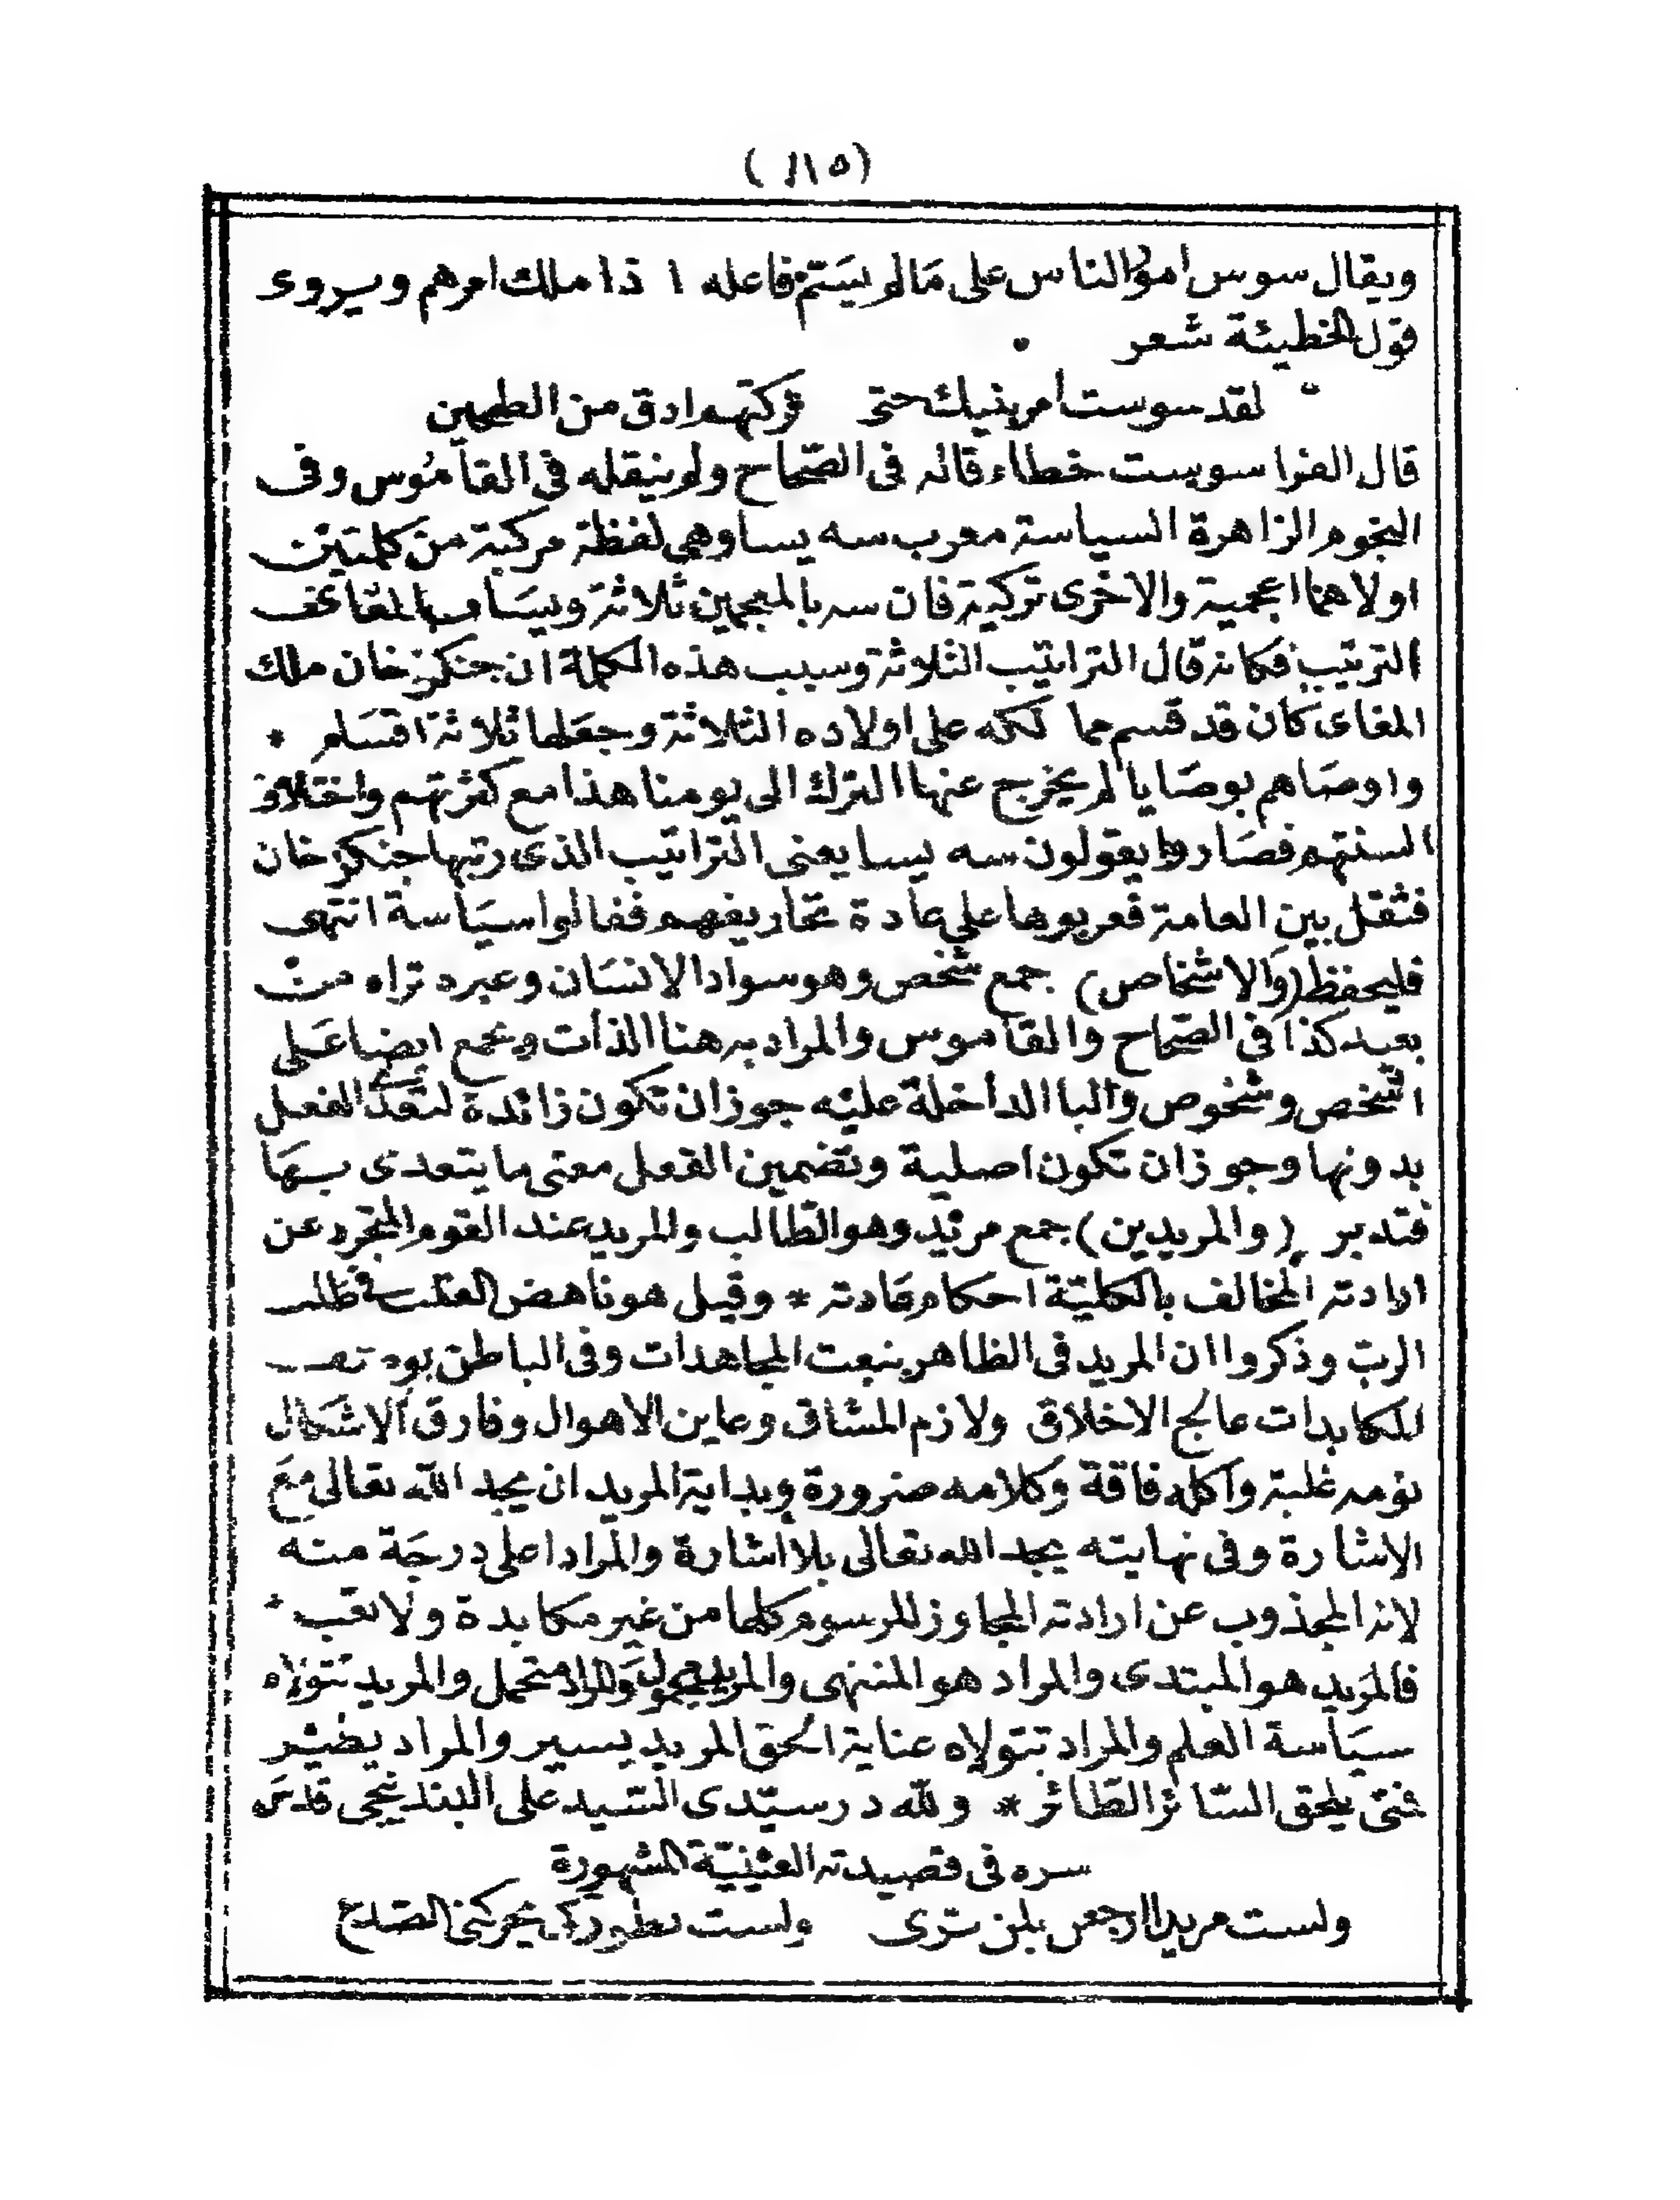 (١١٥)
ويقال سوس امور الناس على مالم يسم فاعله اذا ملك امرهم ويروى
قول الخطيئة شعر
لقد سوست امر بنيك حتى تركتهم ادق من الطحين
قال الفرا سوست خطاء قاله فى الصحاح ولم ينقله فى القاموس وفى
النجوم الزاهرة السياسة معرب سه يسا وهى لفظة مركبة من كلمتين
اولاهما اعجمية والاخرى تركية فان سه بالعجمين ثلاثة ويسا بالمغاى
الترتيب فكانه قال التراتيب الثلاثة وسبب هذه الكلمة ان جنكزخان ملك
المغاى كان قد قسم ممالكه على اولاده الثلاثة وجعلها ثلاثة اقسام *
واوصاهم بوصايا لم يخرج عنها الترك الى يومنا هذا مع كثرتهم واختلاف
السنتهم فصاروا يقولون سه يسا يعنى التراتيب الذى رتبها جنكزخان
فثقل بين العامة فعربوها على عادة تحاريفهم فقالوا سياسة انتهى
فليحفظ (والاشخاص) جمع شخص وهو سواد الانسان وغيره تراه من
بعيد كذا فى الصحاح والقاموس والمراد به هنا الذات ويجمع ايضا على
اشخص وشخوص والبا الداخلة عليه جوز ان تكون زائدة لتعد الفعل
بدونها وجوز ان تكون اصلية وتضمين الفعل معنى ما يتعدى بها
فتدبر (والمريدين) جمع مريد وهو الطالب والمريد عند القوم المتجرد عن
ارادته المخالف بالكلية احكام عادته * وقيل هو ناهض القلب فى طلب
الرب وذكروا ان المريد فى الظاهر بنعت المجاهدات وفى الباطن بوصف
المكابدات عالج الاخلاق ولازم المشاق وعاين الاهوال وفارق الاشكال
نومه غلبة واكله فاقة وكلامه ضرورة وبداية المريد ان يجد الله تعالى مع
الاشارة وفى نهايته يجد الله تعالى بلا اشارة والمراد اعلى درجة منه
لانه المجذوب عن ارادته المجاوز للرسوم كلها من غير مكابدة ولا تعب
فالمريد هو المبتدى والمراد هو المنتهى والمريد محمول والمراد متحمل والمريد تتولاه
سياسة العلم والمراد تتولاه عناية الحق المريد يسير والمراد يطير
فمتى يلحق السائر الطائر * ولله در سيدى السيد على البندنيجى قدس
سره فى قصيدته العينية المشهورة
ولست مريدا ارجعن بلن ترى ولست بطور كى يحركنى الصدع